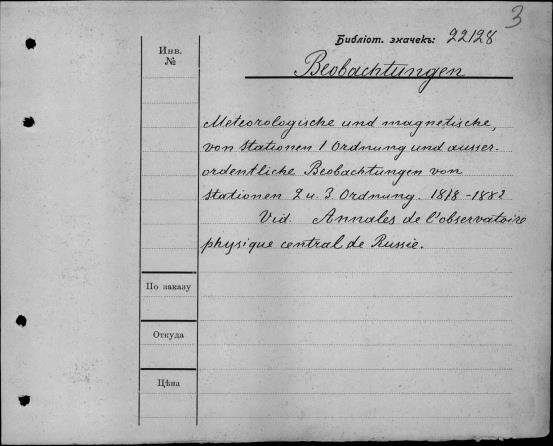 3
Библіот. значекъ: 22128
Инв.
№
Beobachtungen
Meteorologische und magnetische,
von Stationen 1 Ordnung und ausser-
ordentliche Beobachtungen von
Stationen 2 u. 3. Ordnung. 1878-1882
Vid. Annales de l'observatoire
physique central de Russie.
По заказу
Откуда
Цѣна